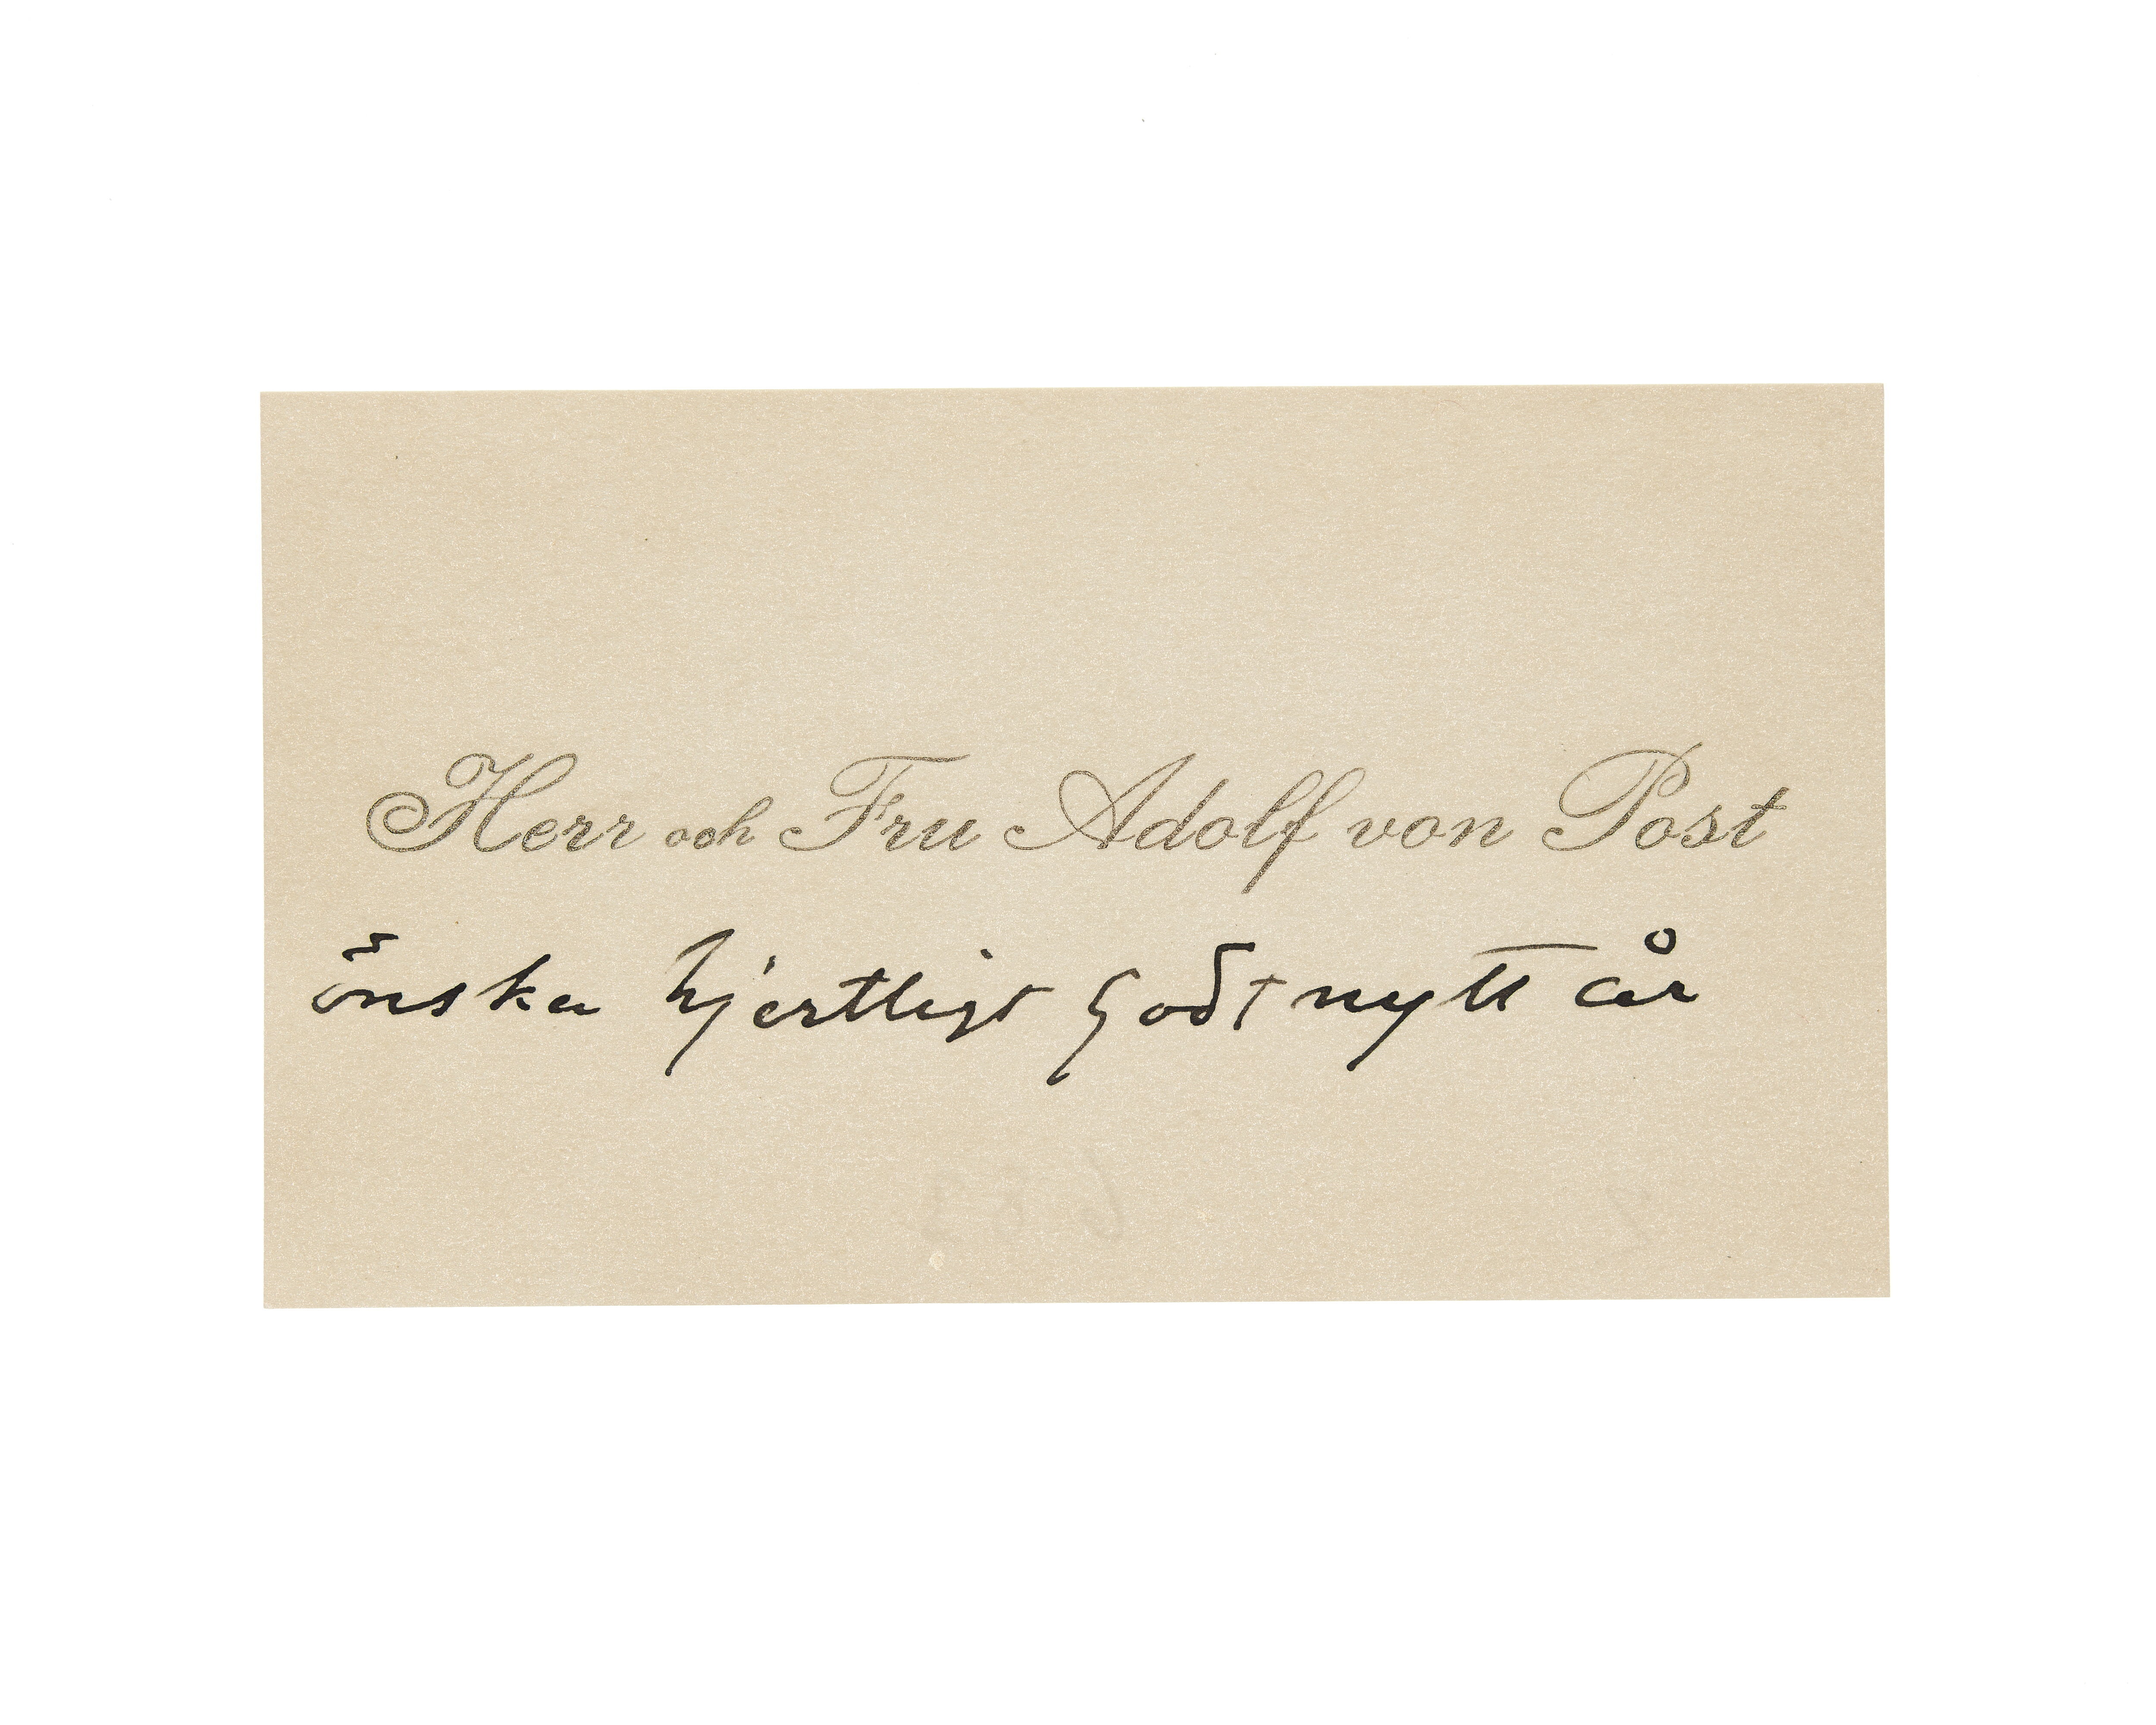 Herr och Fru Adolf von Post
önska hjertligt godt nytt år